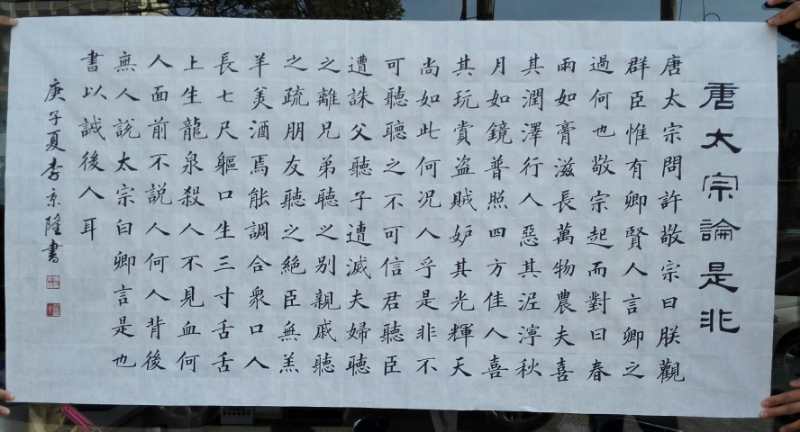 唐太宗論是非
唐太宗問許敬宗曰朕觀
群臣惟有卿賢人言卿之
過何也敬宗起而對曰春
雨如膏滋長萬物農夫喜
其潤澤行人惡其泥濘秋
月如鏡普照四方佳人喜
其玩賞盜賊妒其光輝天
尚如此何況人乎是非不
可聽聽之不可信君聽臣
遭誅父聽子遭滅夫婦聽
之離兄弟聽之別親戚聽
之疏朋友聽之絕臣無羔
羊美酒焉能調合眾口人
長七尺軀口生三寸舌舌
上生龍泉殺人不見血何
人面前不説人何人背後
無人説太宗曰卿言是也
書以誡後人耳
庚子夏李京隆書